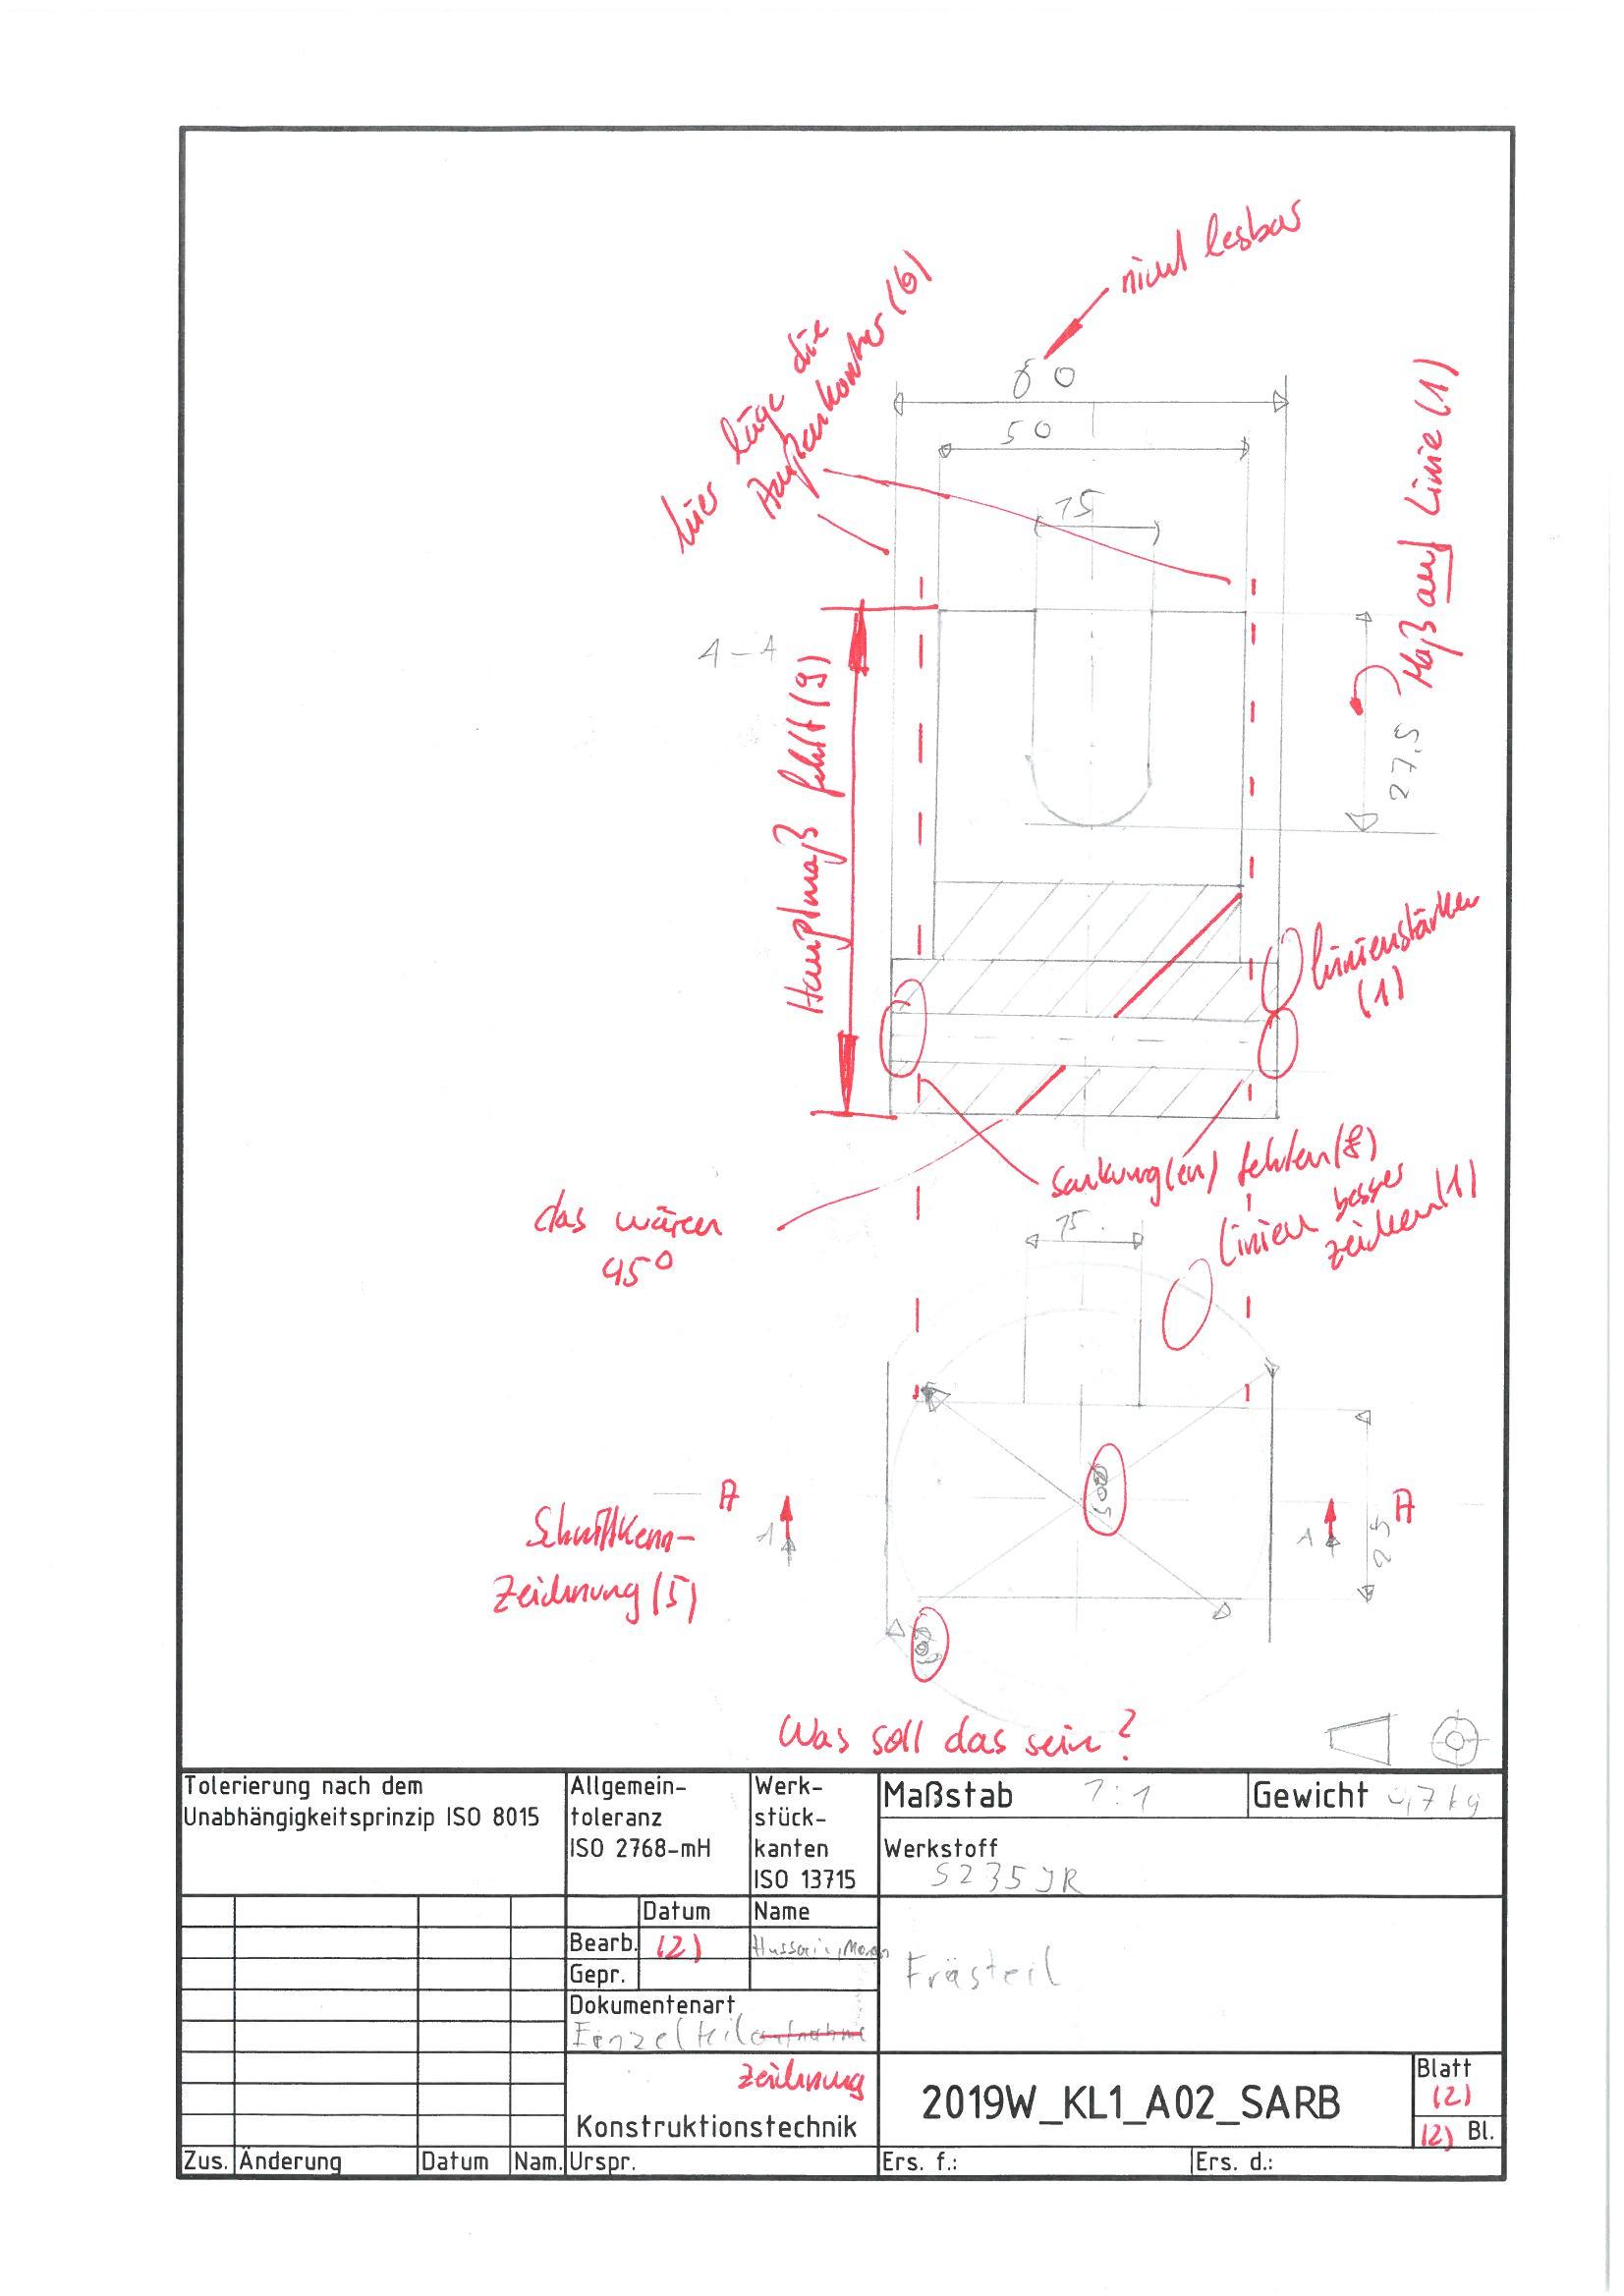 nicht lesbar
hier läge die
Außenkontur (6)
60
50
15
Maß auf Linie (1)
A-A
Hauptmaß fehlt (9)
27,5
Linienstärken
(1)
Senkung(en) fehlen (8)
Linien besser
zeichen (1)
das wären
45°
15
A
A
Schnittkenn-
zeichnung (5)
A
A
25
Was soll das sein?
Tolerierung nach dem
Unabhängigkeitsprinzip ISO 8015
Allgemein-
toleranz
ISO 2768-mH
Werk-
stück-
kanten
ISO 13715
Maßstab 1:1
Gewicht 0,7 kg
Werkstoff
S235JR
Datum Name
Bearb. (2) Hussain,
Gepr.
Frästeil
Dokumentenart
Einzelteilaufnahme
zeichnung
Konstruktionstechnik
2019W_KL1_A02_SARB
Blatt
(2)
(2) Bl.
Zus. Änderung Datum Nam. Urspr. Ers. f.: Ers. d.: